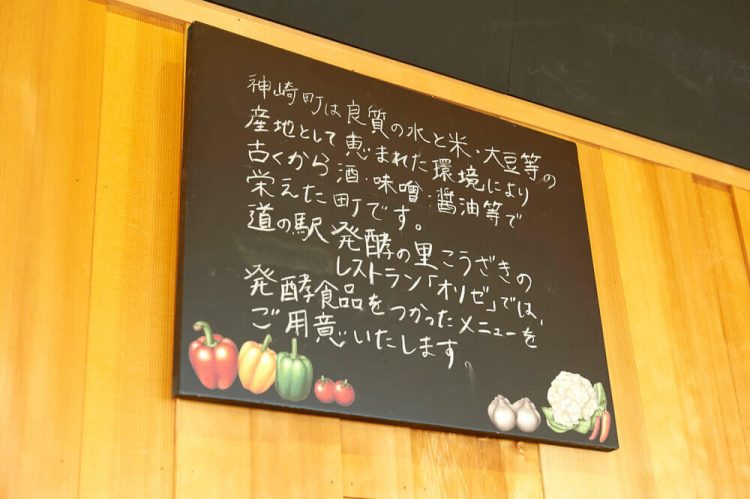 神崎町は良質の水と米・大豆等の
産地として恵まれた環境により
古くから酒・味噌・醤油等で
栄えた町です。
道の駅発酵の里こうざきの
レストラン「オリゼ」では、
発酵食品をつかったメニューを
ご用意いたします。